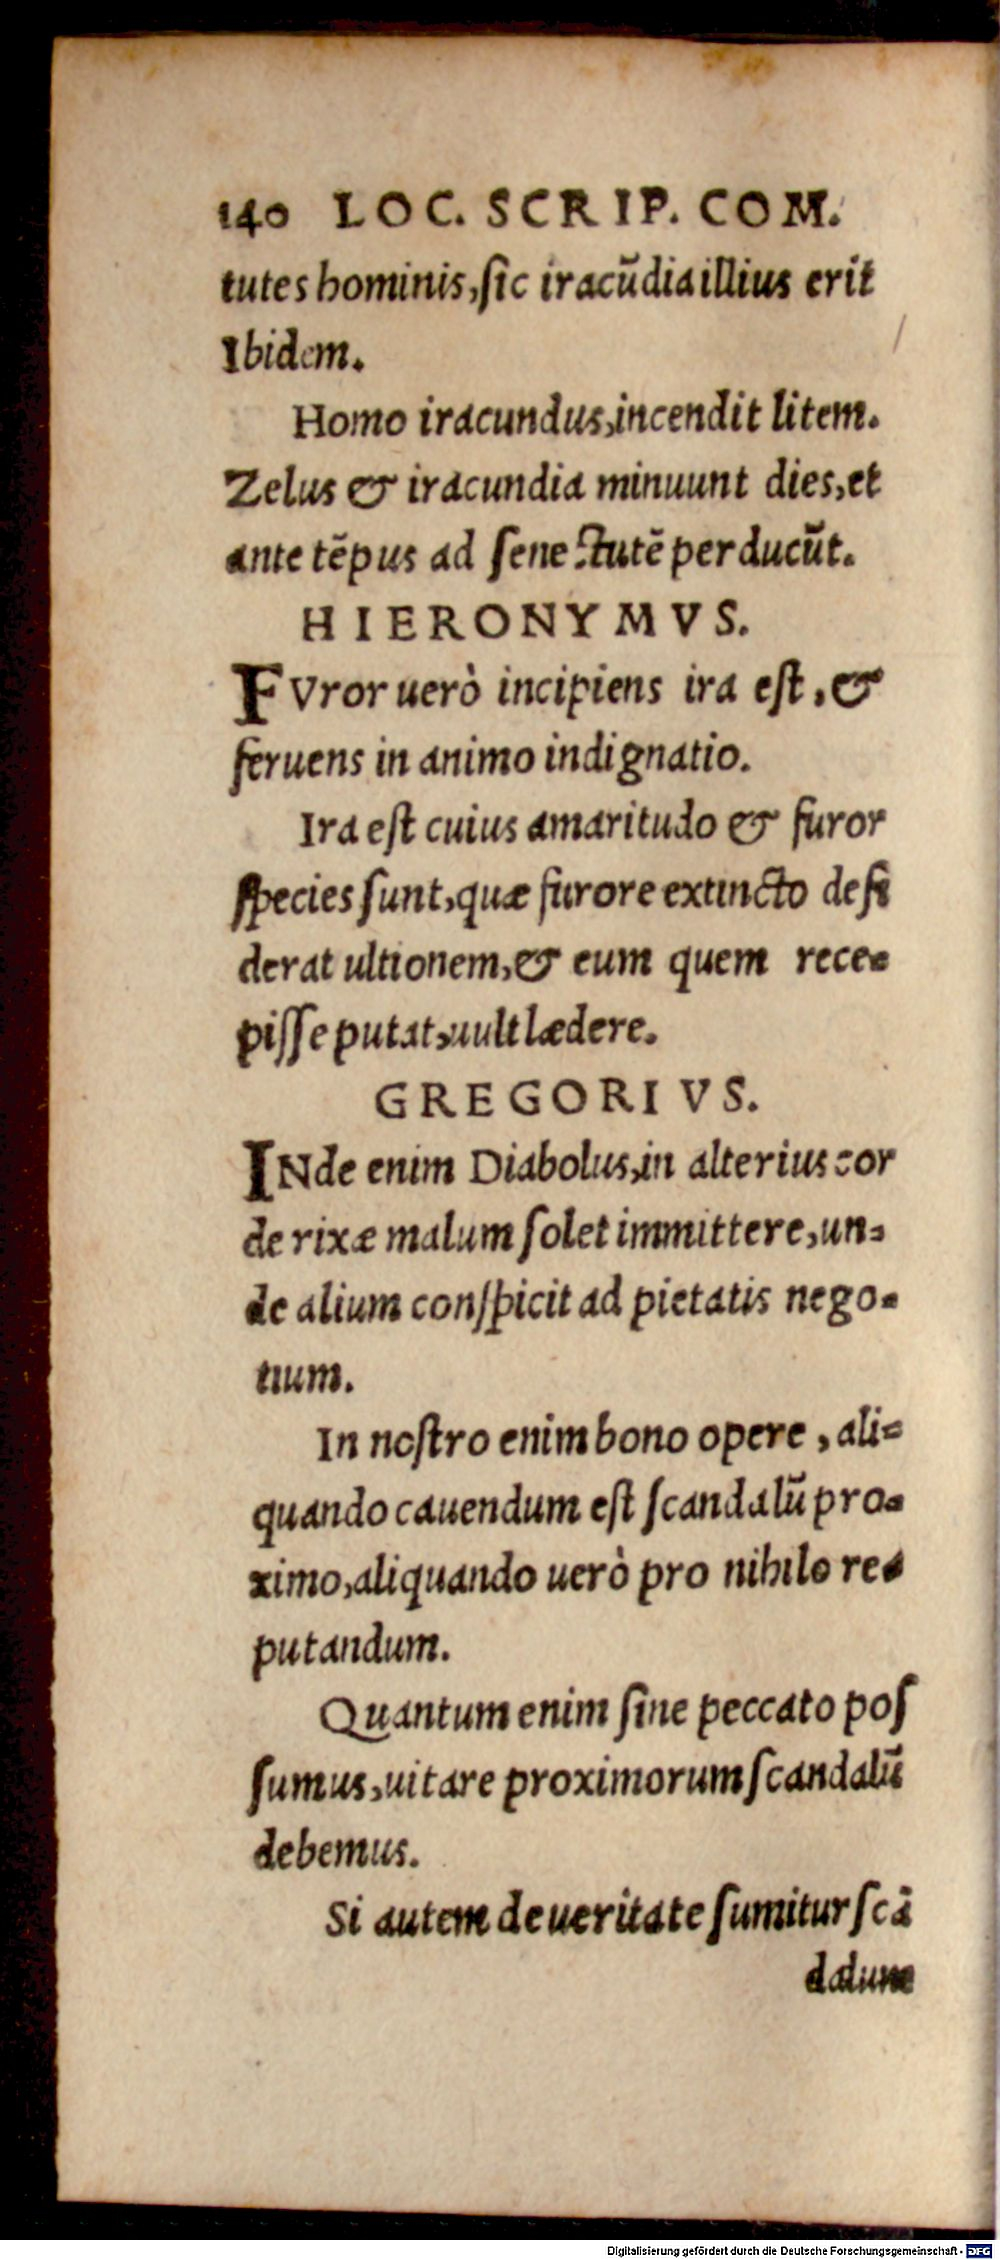 140 LOC. SCRIP. COM.
tutes hominis, ſic iracũdia illius erit
Ibidem.
Homo iracundus, incendit litem.
Zelus & iracundia minuunt dies, et
ante tẽpus ad ſenectutẽ perducũt.
HIERONYMVS.
FVror uerò incipiens ira eſt, &
feruens in animo indignatio.
Ira eſt cuius amaritudo & furor
ſpecies ſunt, quæ furore extincto deſi
derat ultionem, & eum quem rece-
piſſe putat, uult lædere.
GREGORIVS.
INde enim Diabolus, in alterius cor
de rixæ malum ſolet immittere, un-
de alium conſpicit ad pietatis nego-
tium.
In noſtro enim bono opere, ali-
quando cauendum eſt ſcandalũ pro-
ximo, aliquando uerò pro nihilo re-
putandum.
Quantum enim ſine peccato poſ
ſumus, uitare proximorum ſcandalũ
debemus.
Si autem de ueritate ſumitur ſcã
dalum
Digitalisierung gefördert durch die Deutsche Forschungsgemeinschaft - DFG